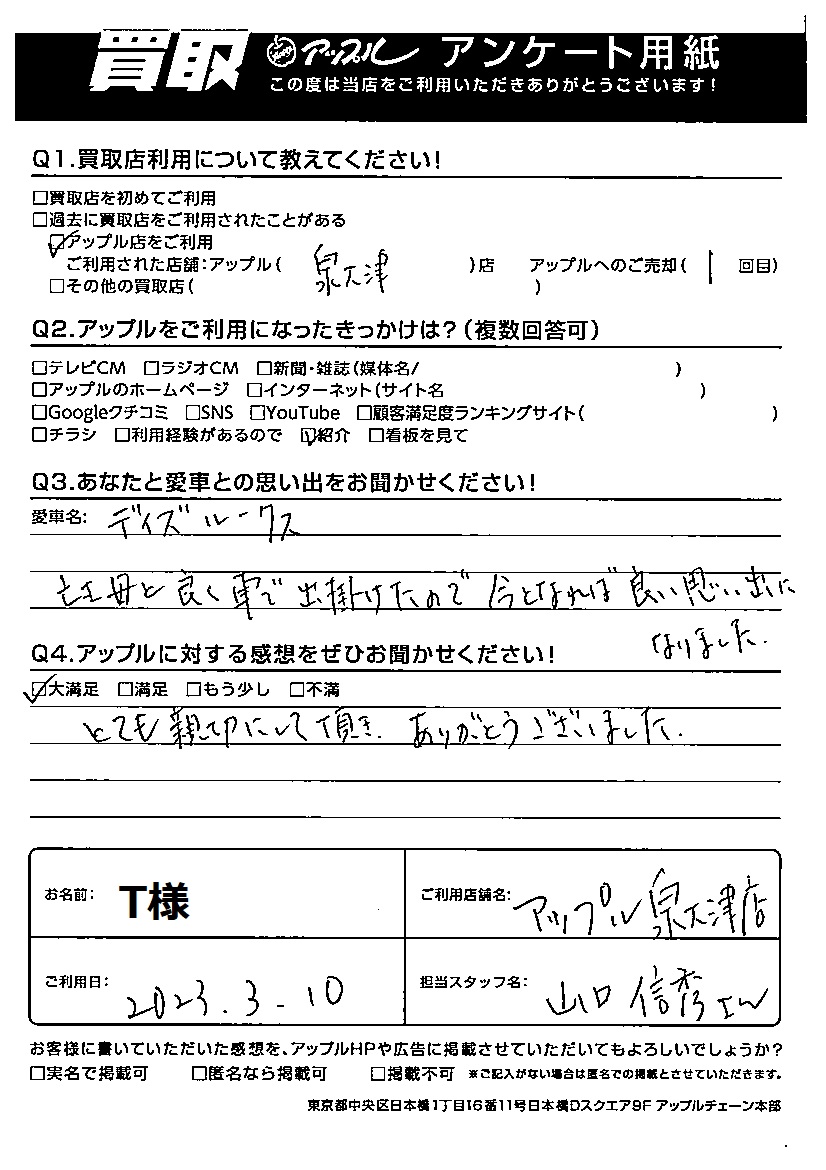 買取 アップル アンケート用紙
この度は当店をご利用いただきありがとうございます!
Q1.買取店利用について教えてください!
□買取店を初めてご利用
□過去に買取店をご利用されたことがある
☑アップル店をご利用
ご利用された店舗:アップル( 泉大津 )店 アップルへのご売却( 1 回目)
□その他の買取店( )
Q2.アップルをご利用になったきっかけは?(複数回答可)
□テレビCM □ラジオCM □新聞・雑誌(媒体名/ )
□アップルのホームページ □インターネット(サイト名 )
□Googleクチコミ □SNS □YouTube □顧客満足度ランキングサイト( )
□チラシ □利用経験があるので ☑紹介 □看板を見て
Q3.あなたと愛車との思い出をお聞かせください!
愛車名: デイズルークス
亡き母と良く車で出掛けたので今となれば良い思い出に
なりました.
Q4.アップルに対する感想をぜひお聞かせください!
☑大満足 □満足 □もう少し □不満
とても親切にして頂き.ありがとうございました.
お名前: T様
ご利用店舗名: アップル泉大津店
ご利用日: 2023.3-10
担当スタッフ名: 山口 信秀
お客様に書いていただいた感想を、アップルHPや広告に掲載させていただいてもよろしいでしょうか?
□実名で掲載可 □匿名なら掲載可 □掲載不可 ※ご記入がない場合は匿名での掲載とさせていただきます。
東京都中央区日本橋1丁目16番11号日本橋Dスクエア9F アップルチェーン本部